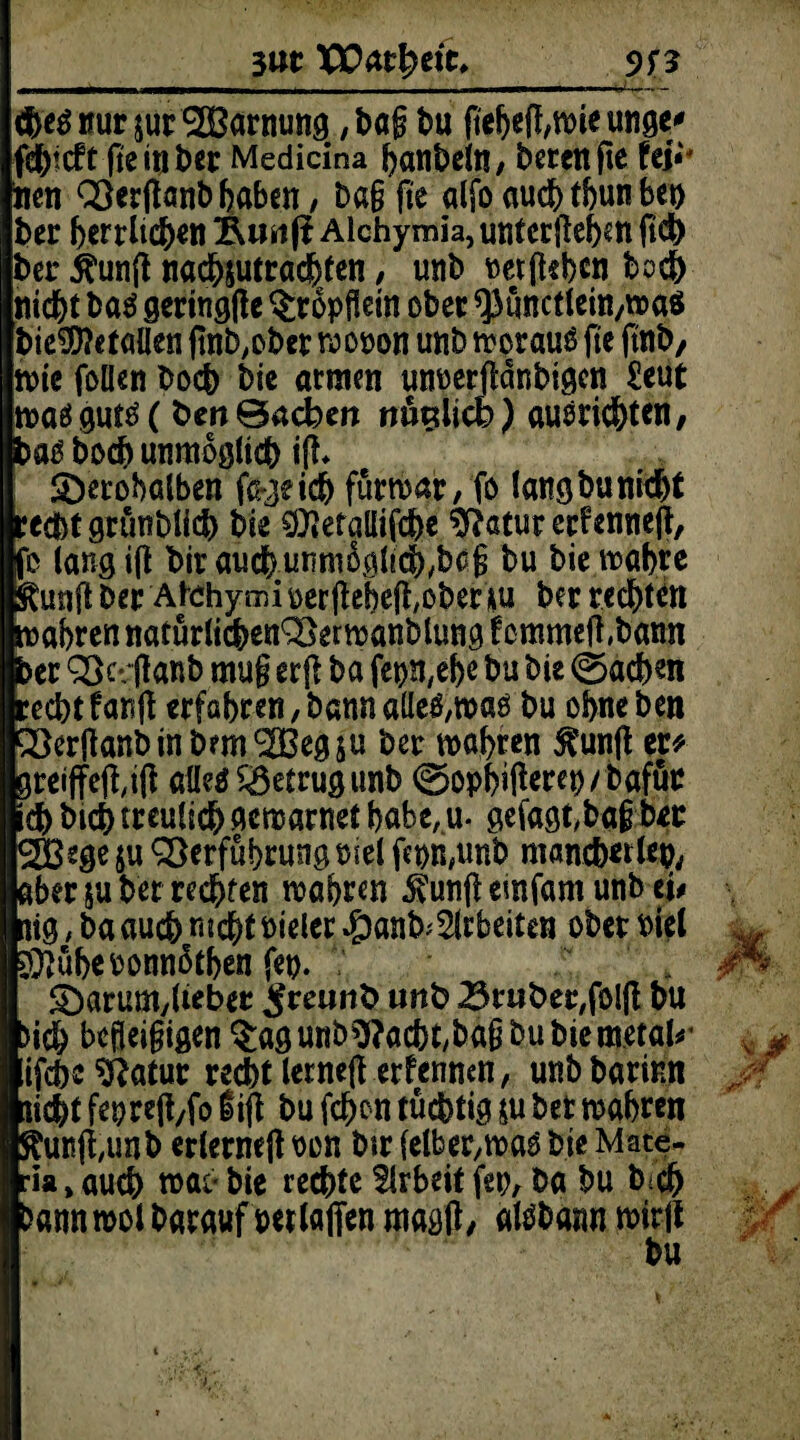 zur Warheit. 953
ches nur zur Warnung, daß du siehest, wie unge-
schickt sie in der Medicina handeln, deren sie kei-
nen Verstand haben, daß sie also auch thun bey
der herrlichen Kunst Alchymia, unterstehen sich
der Kunst nachzutrachten, und verstehen doch
nicht das geringste Tröpflein oder Pünctlein, was
die Metallen sind, oder wovon und woraus sie sind,
wie sollen doch die armen unverständigen Leut
was guts (den Sachen nützlich) ausrichten,
das doch unmöglich ist.
Derohalben sage ich fürwar, so lang du nicht
recht gründlich die Metallische Natur erkennest,
so lang ist dir auch unmöglich, daß du die wahre
Kunst der Alchymi verstehest, oder zu der rechten
wahren natürlichen Verwandlung kommest, dann
der Verstand muß erst da seyn, ehe du die Sachen
recht kanst erfahren, dann alles, was du ohne den
Verstand in dem Weg zu der wahren Kunst er-
greiffest, ist alles Betrug und Sophisterey / dafür
ich dich treulich gewarnet habe, u. gesagt, daß der
Wege zu Verführung viel seyn, und mancherley,
aber zu der rechten wahren Kunst einsam und ei-
nig, da auch nicht vieler Hand-Arbeiten oder viel
Mühe vonnöthen sey.
Darum, lieber Freund und Bruder, solst du
dich befleißigen Tag und Nacht, daß du die metal-
lische Natur recht lernest erkennen, und darinn
nicht feyrest, so bist du schon tüchtig zu der wahren
Kunst, und erlernest von dir selber, was die Mate-
ria, auch was die rechte Arbeit sey, da du dich
dann wol darauf verlassen magst, alsdann wirst
du